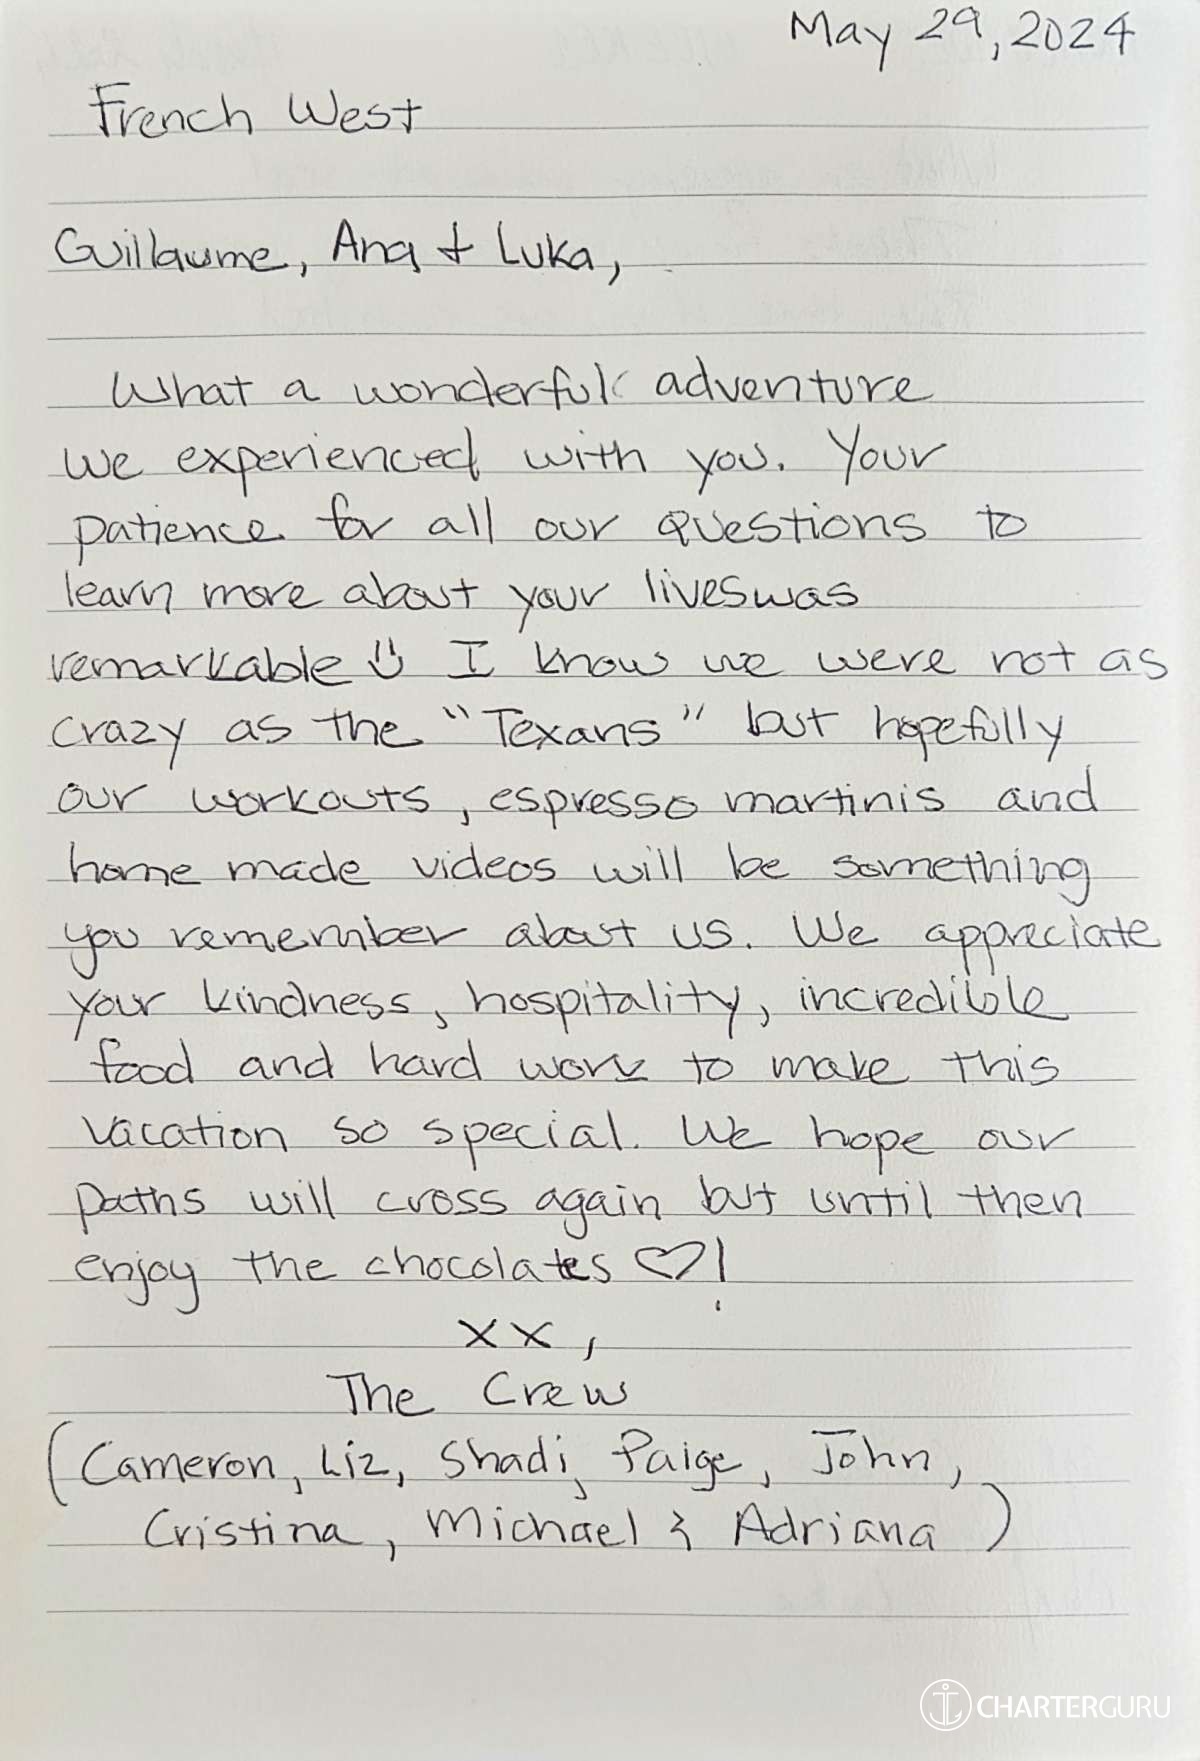 May 29, 2024
French West
Guillaume, Ana + Luka,
What a wonderful adventure
we experienced with you. Your
patience for all our questions to
learn more about your lives was
remarkable I know we were not as
crazy as the "Texans" but hopefully
our workouts, espresso martinis and
home made videos will be something
you remember about us. We appreciate
your kindness, hospitality, incredible
food and hard work to make this
vacation so special. We hope our
paths will cross again but until then
enjoy the chocolates ♡!
xx,
The Crew
(Cameron, Liz, Shadi, Paige, John,
Cristina, Michael & Adriana)
CHARTERGURU